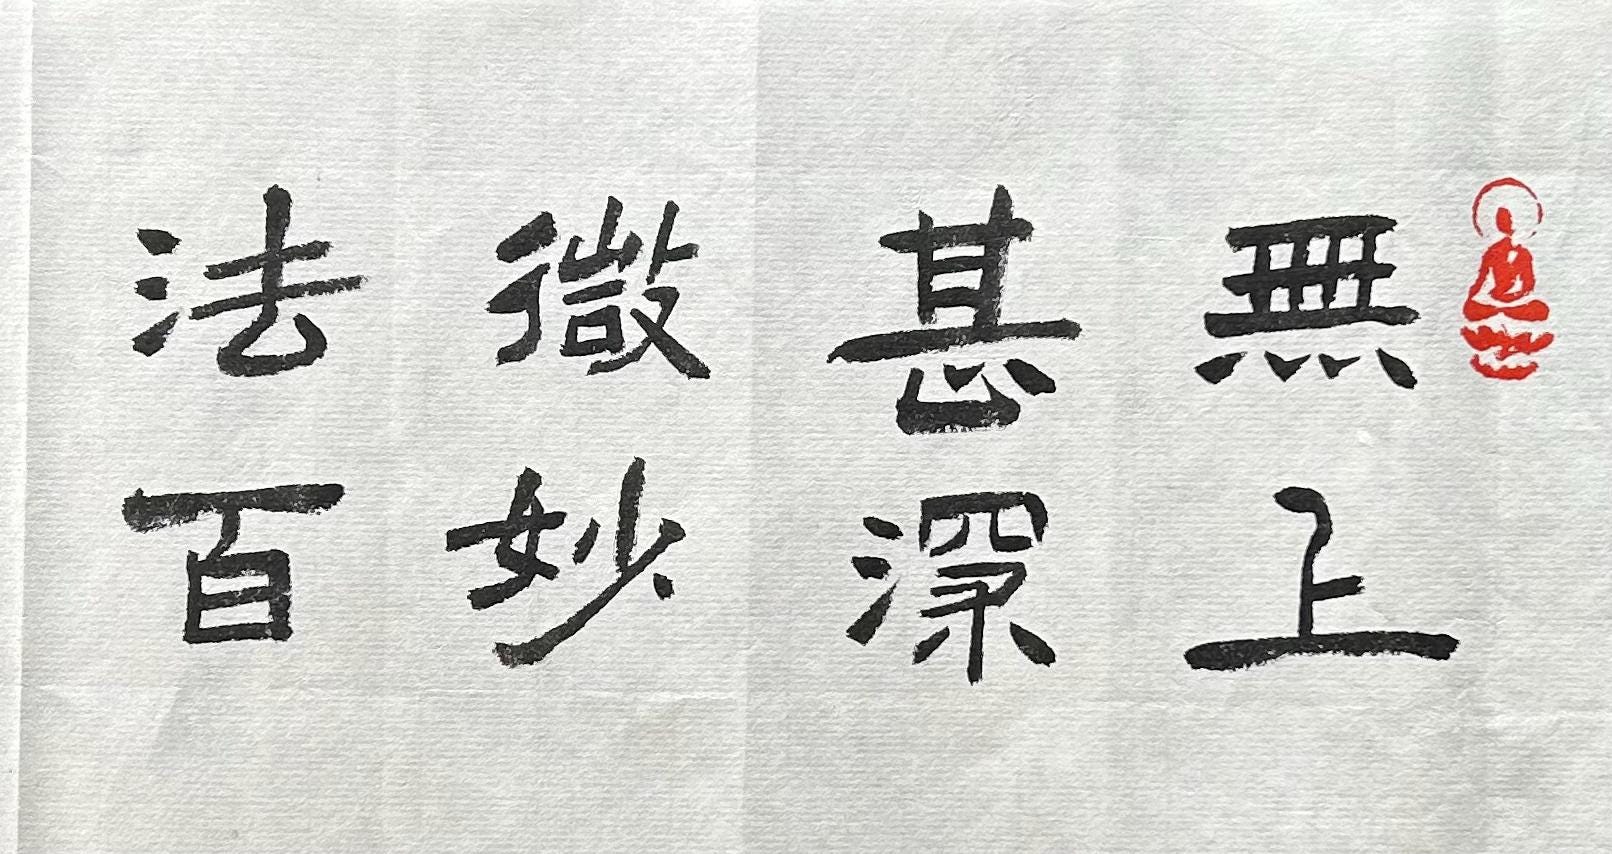 無上
甚深
微妙
法百